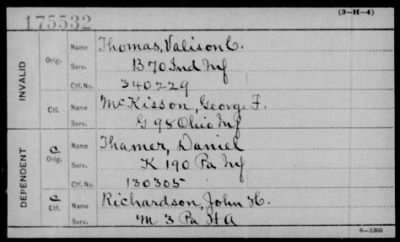 (3-H-4)
175532
INVALID
Orig.
Name Thomas, Valison C.
Serv. B 70 Ind Inf
Ctf. No. 340229
Ctf.
Name McKisson, George F.
Serv. G 98 Ohio Inf
DEPENDENT
C Orig.
Name Thamer, Daniel
Serv. K 190 Pa Inf
Ctf. No. 130305
C Ctf.
Name Richardson, John H.
Serv. M 3 Pa H A
6-1303